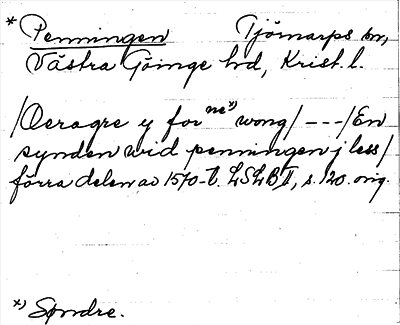 * Penningen Tjörnarps sn,
Västra Göinge hd, Krist. l.
/Oeragre y for ne*) wong/ - - - /En
synden wid penningen j less/
förra delen av 1570-t. LSLB II, s. 120. orig.
*) Søndre.